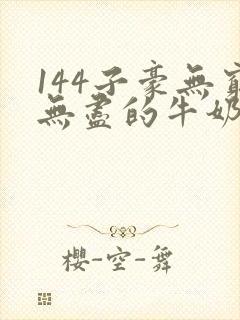 144子豪無窮
無盡的牛奶
櫻-空-舞